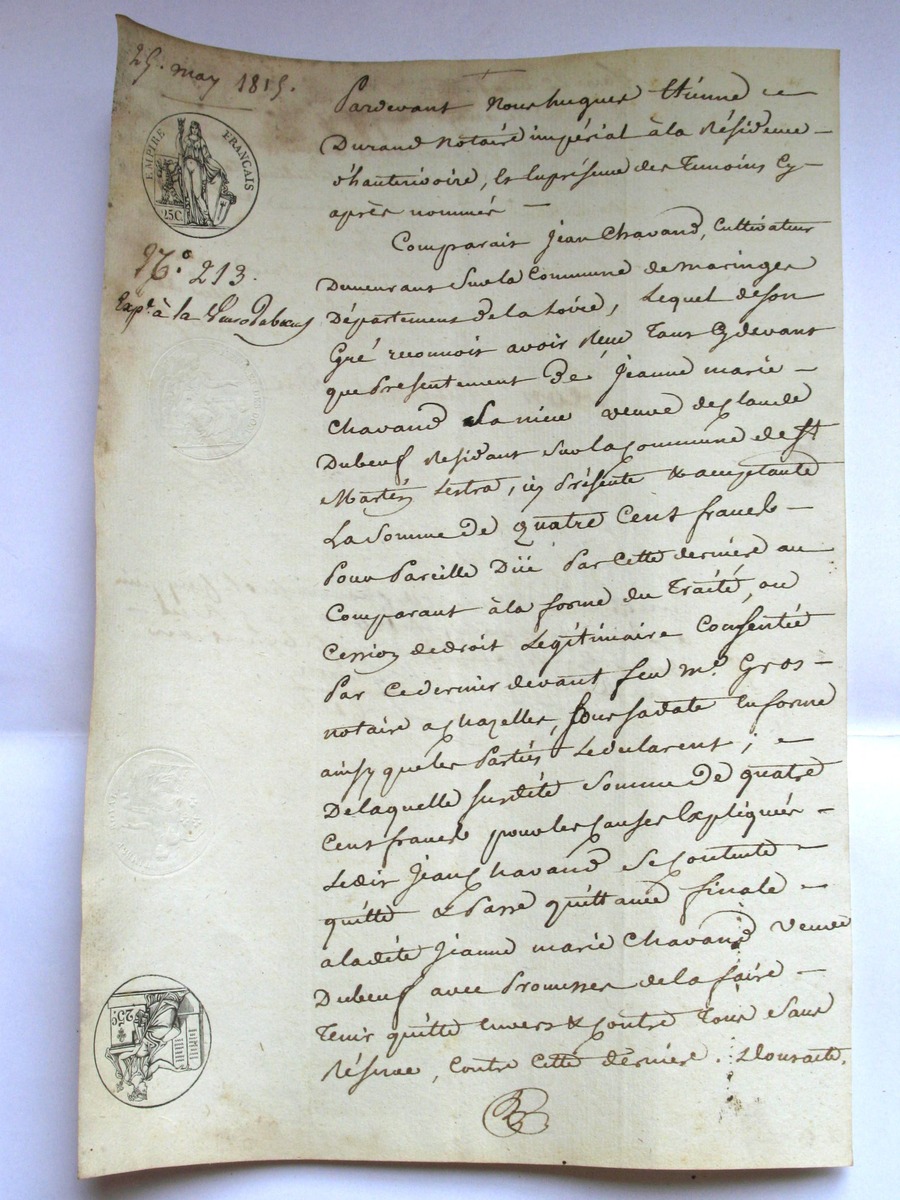 25. may 1815.
EMPIRE FRANÇAIS
25C
N.° 213.
Exp.e à la
25C
Pardevant Nous hugues Etienne
Durand Notaire impérial à la Résidence
d'hauterivoire, Et Enpresence des Temoins Cy
après nommés
Comparait Jean Chavand, Cultivateur
Demeurant Sur la Commune de maringes
Département de la Loire, Lequel de son
Gré reconnoit avoir Reçu Tant Cydevant
que Présentement de Jeanne marie
Chavand Sa niece veuve de Claude
Dubeuf Residant Sur la Commune de St
Martin Lestra, icy Présente & acceptante
La Somme de quatre Cent francs
Pour Pareille Düe Par Cette derniere au
Comparant à la forme du Traité, ou
Cession de droit Légitimaire Consentie
Par Cedernier devant feu me. Gros
notaire a Chazelles, Sous sa date En forme
ainsy que les Parties Le declarent ;
De laquelle susdite Somme De quatre
Cent francs pour les Causes Expliquées
Ledit Jean Chavand Se Contente
quitte & Passe quittance finale
a ladite Jeanne marie Chavand Veuve
Dubeuf avec Promesses de la faire
Tenir quitte envers & Contre Tous Sans
Réserve, Contre Cette dernière. Dont acte,